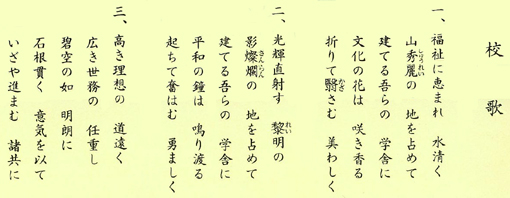 校歌
一、福祉に恵まれ 水清く
山秀麗の 地を占めて
建てる吾らの 学舎に
文化の花は 咲き香る
折りて翳さむ 美わしく
二、光輝直射す 黎明の
影燦爛の 地を占めて
建てる吾らの 学舎に
平和の鐘は 鳴り渡る
起ちて奮はむ 勇ましく
三、高き理想の 道遠く
広き世務の 任重し
碧空の如 明朗に
石根貫く 意気を以て
いざや進まむ 諸共に